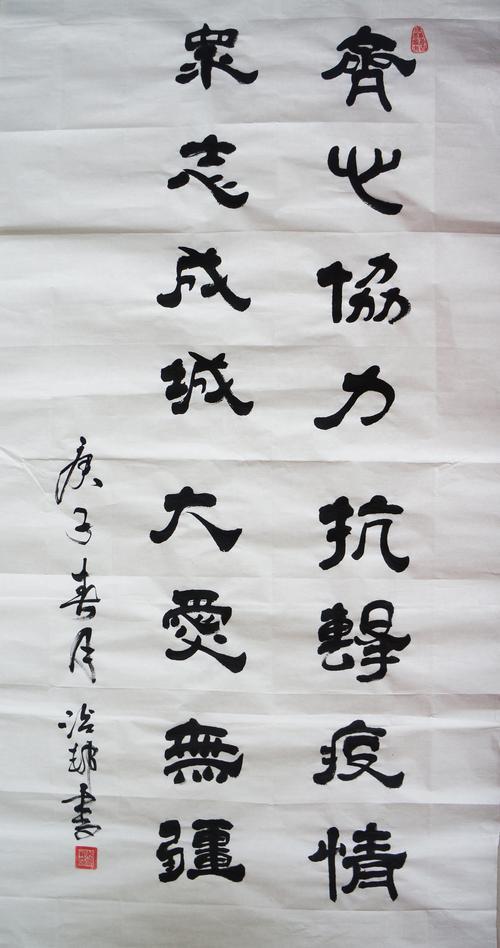 齊心協力抗擊疫情
眾志成城大愛無疆
庚子春月治邦書